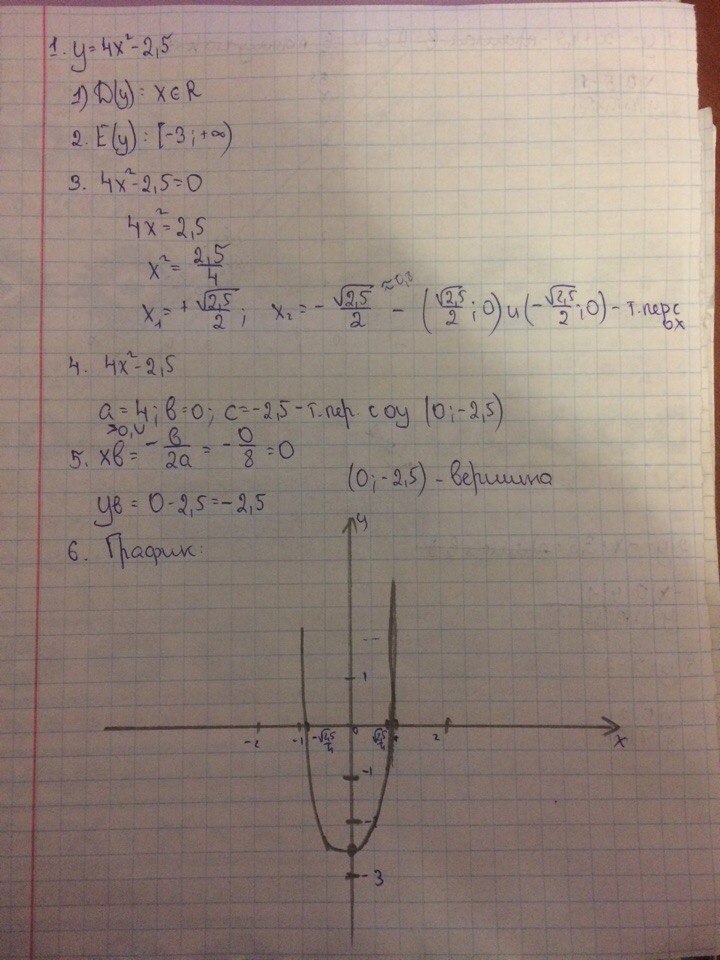 1. y = 4x² - 2,5
1) D(y): x ∈ R
2. E(y): [-3; +∞)
3. 4x² - 2,5 = 0
4x² = 2,5
x² = 2,5/4
x₁ = +√2,5/2; x₂ = -√2,5/2 ≈0,8 - (√2,5/2; 0) и (-√2,5/2; 0) - т.перс ox
4. 4x² - 2,5
a = 4; в = 0; c = -2,5 - т.пер. с оу (0; -2,5)
>0, U
5. xв = -в/2a = -0/8 = 0
(0; -2,5) - вершина
yв = 0 - 2,5 = -2,5
6. График:
y
1
-2 -1 -√2,5 0 √2,5 2 x
-1
-3